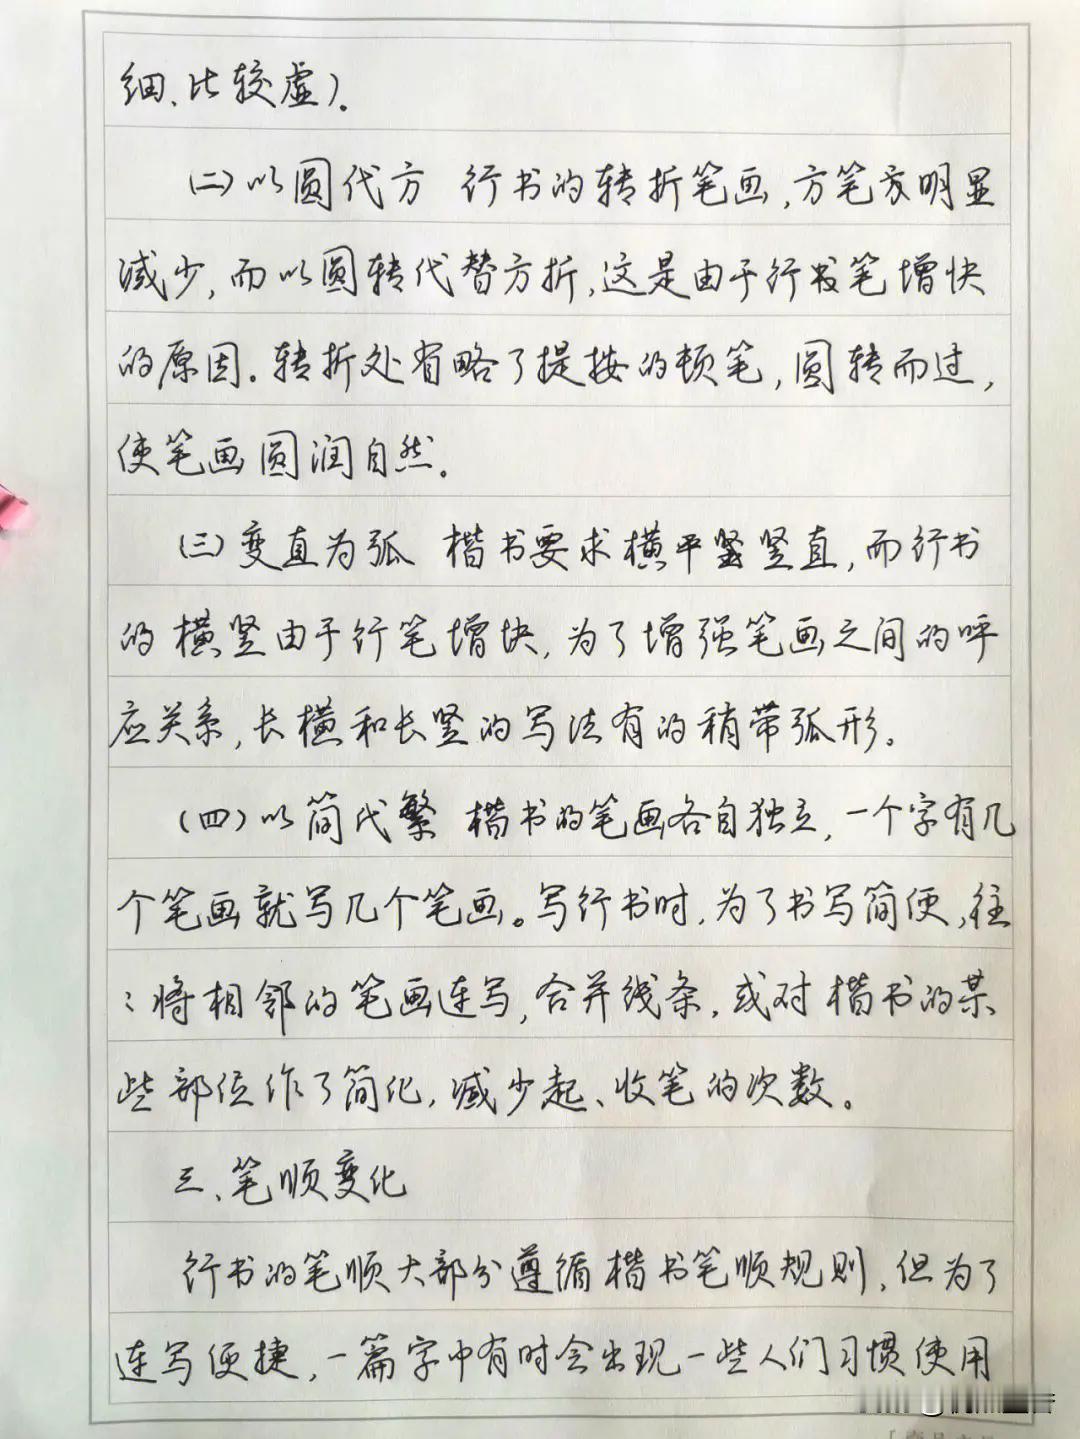 细、比较虚）.
（二）以圆代方　行书的转折笔画，方笔家明显
减少，而以圆转代替方折，这是由于行书笔增快
的原因。转折处省略了提按的顿笔，圆转而过，
使笔画圆润自然。
（三）变直为弧　楷书要求横平竖竖直，而行书
的横竖由于行笔增快，为了增强笔画之间的呼
应关系，长横和长竖的写法有的稍带弧形。
（四）以简代繁　楷书的笔画各自独立，一个字有几
个笔画就写几个笔画。写行书时，为了书写简便，往
々将相邻的笔画连写，合并线条，或对楷书的某
些部位作了简化，减少起、收笔的次数。
三、笔顺变化
行书的笔顺大部分遵循楷书笔顺规则，但为了
连写便捷，一篇字中有时会出现一些人们习惯使用